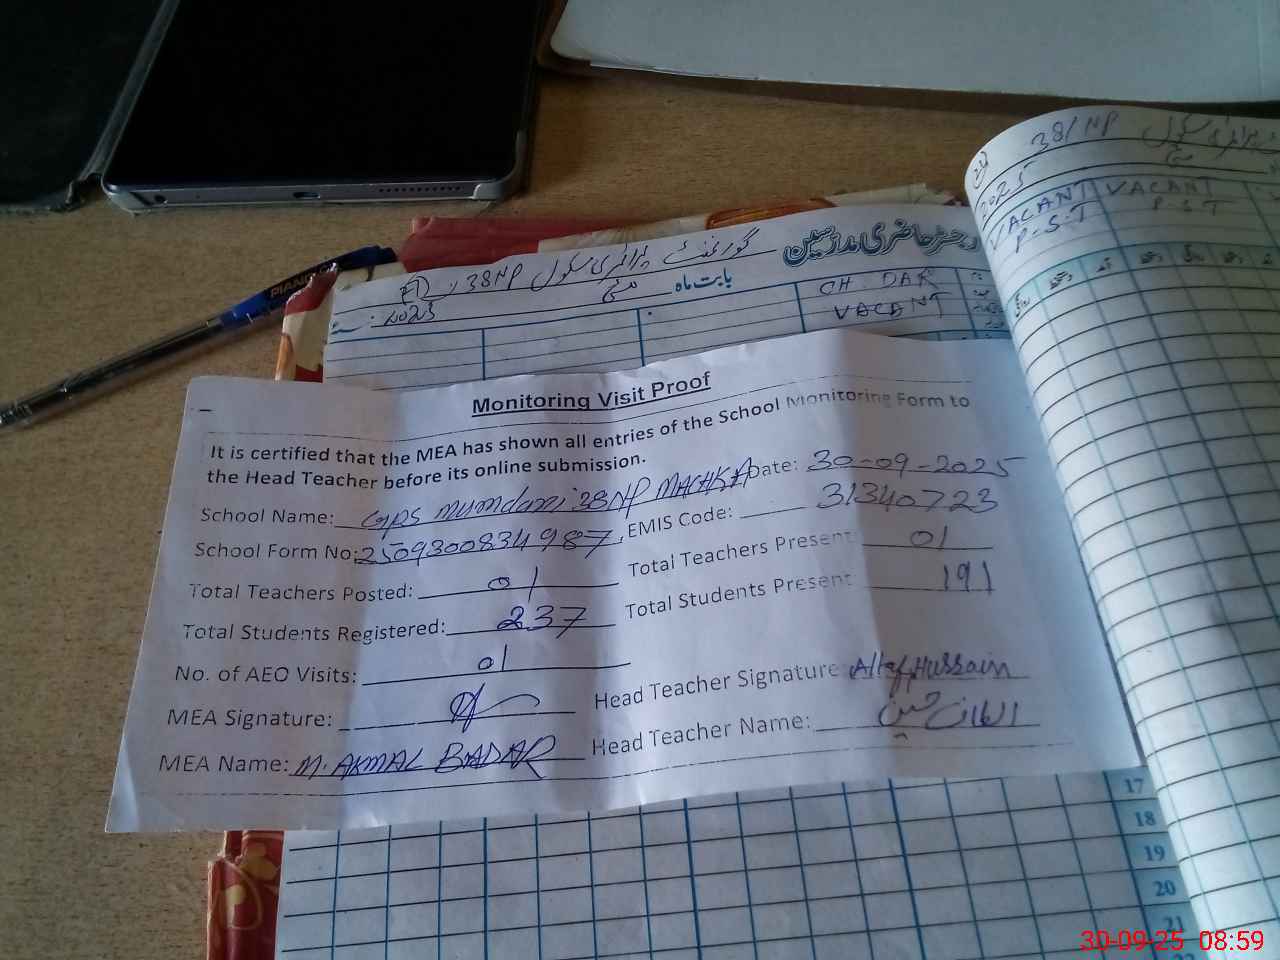 38/NP
2025
VACANT VACANT
P-S-T P-S-T
رجسٹر حاضری مدارسین
گورنمنٹ پرائمری سکول 38NP
بابت ماہ
2025
CH. DAR
VACANT
PIANO
Monitoring Visit Proof
It is certified that the MEA has shown all entries of the School Monitoring Form to
the Head Teacher before its online submission.
Date: 30-09-2025
School Name: GPS mumdani 38NP MACHKA
School Form No: 2509300834987, EMIS Code: 31340723
Total Teachers Posted: 01 Total Teachers Present: 01
Total Students Registered: 237 Total Students Present: 191
No. of AEO Visits: 01
MEA Signature: Head Teacher Signature: Altaf Hussain
MEA Name: M. AKMAL BADAR Head Teacher Name: الطاف حسین
17
18
19
20
21
22
30-09-25 08:59